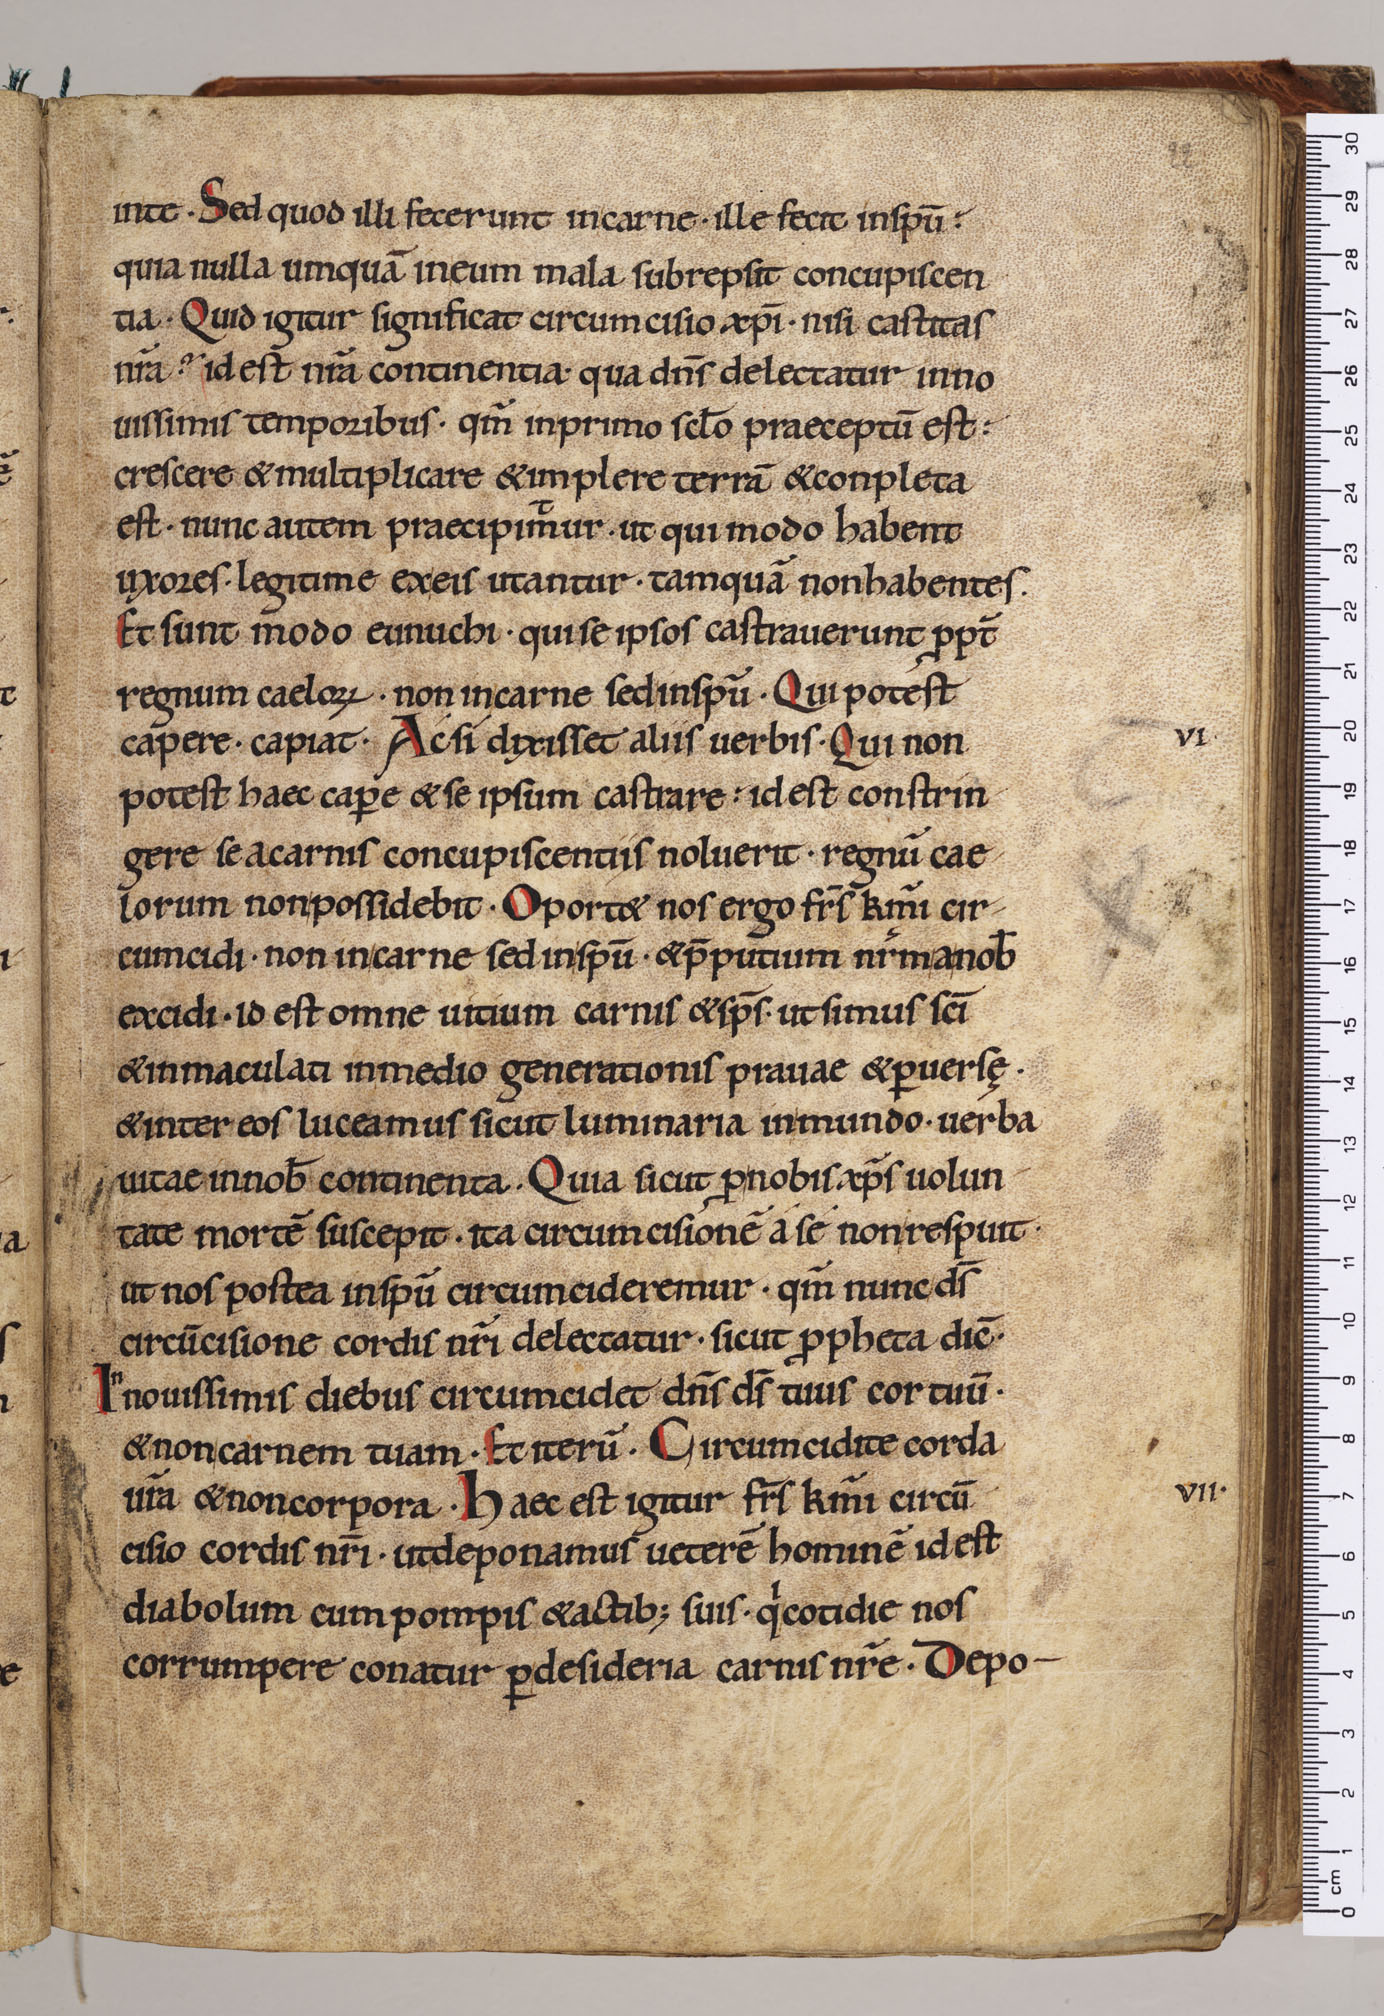 inte · Sed quod illi fecerunt incarne · ille fecit inspū :
quia nulla umquā ineum mala subrepsit concupiscen
tia · Quid igitur significat circumcisio xp̄i · nisi castitas
nr̄a ? id est nr̄a continentia · qua dn̄s delectatur inno
uissimis temporibus · qm̄ inprimo scl̄o praeceptū est :
crescere &multiplicare &implere terrā &conpleta
est · nunc autem praecipimᷓur · ut qui modo habent
uxores · legitime exeis utantur · tamquā nonhabentes .
Et sunt modo eunuchi · qui se ipsos castrauerunt ꝓpt̄
regnum caeloꝝ · non incarne sedinspū · Qui potest
capere · capiat · Ac si dixisset aliis uerbis · Qui non
VI
potest haec capꝑe & se ipsum castrare : id est constrin
gere se acarnis concupiscentiis noluerit · regnū cae
lorum nonpossidebit · Oport& nos ergo fr̄s km̄i cir
cumcidi · non incarne sed inspū · &p̄putium nr̄m anob̄
excidi · id est omne uitium carnis &sp̄s · ut simus sc̄i
&inmaculati inmedio generationis prauae &ꝑuersę .
&inter eos luceamus sicut luminaria inmundo · uerba
uitae innob̄ continenta . Quia sicut ꝓnobis xp̄s uolun
tate mortē suscepit · ita circumcisionē a se non respuit ·
ut nos postea inspū circumcideremur · qm̄ nunc ds̄
circūcisione cordis nr̄i delectatur · sicut ꝓpheta dic̄ ·
In nouissimis diebus circumcidet dn̄s ds̄ tuus cor tuū ·
&noncarnem tuam · Et iterū · Circumcidite corda
ur̄a &noncorpora · Haec est igitur fr̄s km̄i circū
VII ·
cisio cordis nr̄i · utdeponamus ueterē hominē id est
diabolum cum pompis &actib; suis · qͥ cotidie nos
corrumpere conatur ꝑdesideria carnis nr̄e · Depo-